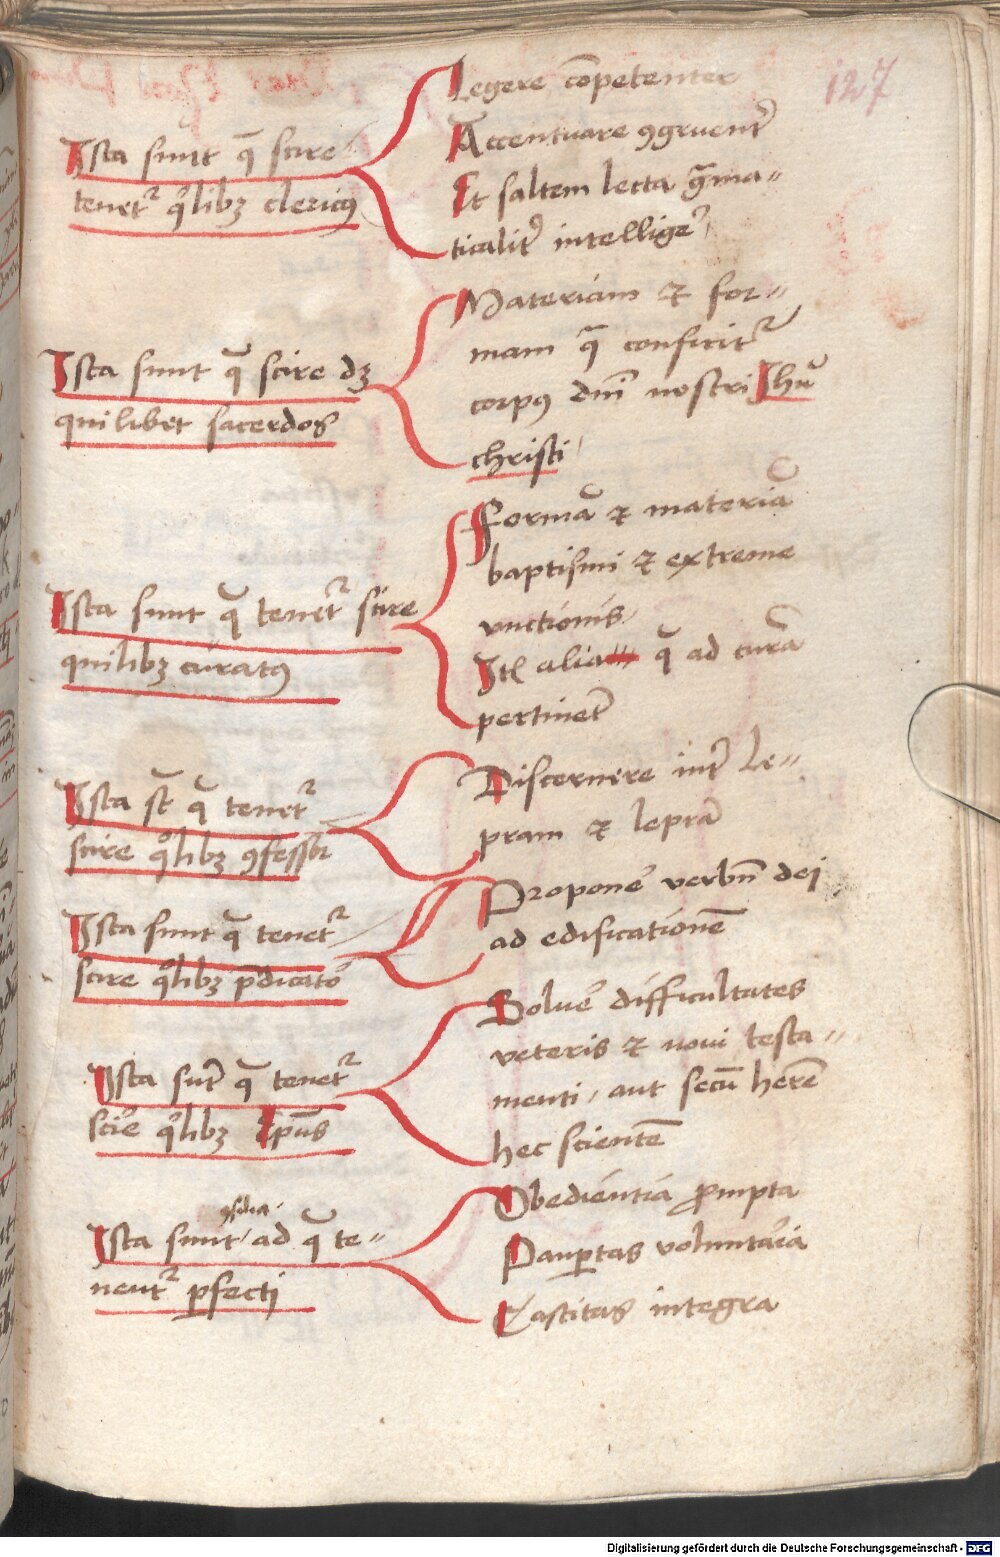 127
Ista sunt q̄ scire
tenet᷑ qͦlibꝫ clericꝰ
Legere cōpetenter
Accentuare ꝯgruent᷑
Et saltem lecta g̃ma-
ticalit᷑ intellige᷑
Ista sunt q̄ scire dꝫ
quilibet sacerdos
Materiam et for-
mam q̄ conficit᷑
corpꝰ dnī nostri Jhū
christi
Ista sunt q̄ tenet᷑ scire
quilibꝫ curatꝰ
Formā et materiā
baptismi et extreme
vnctionis
Itē alia q̄ ad curā
pertinet᷑
Ista st̄ q̄ tenet᷑
scire qͦlibꝫ ꝯfessor
Discernere int᷑ le-
pram et leprā
Ista sunt q̄ tenet᷑
scire qͦlibꝫ p̄dicato᷑
Propone᷑ verbū dei
ad edificationē
Ista sūt q̄ tenet᷑
scire qͦlibꝫ Ep̄us
Solue᷑ difficultates
veteris et noui testa-
menti, aut secū here᷑
hec scientē
ꝯsilia
Ista sunt ad q̄ te-
nent᷑ ꝑfecti
Obedientia ꝓmpta
Pauꝑtas voluntaria
Castitas integra
Digitalisierung gefördert durch die Deutsche Forschungsgemeinschaft - DFG